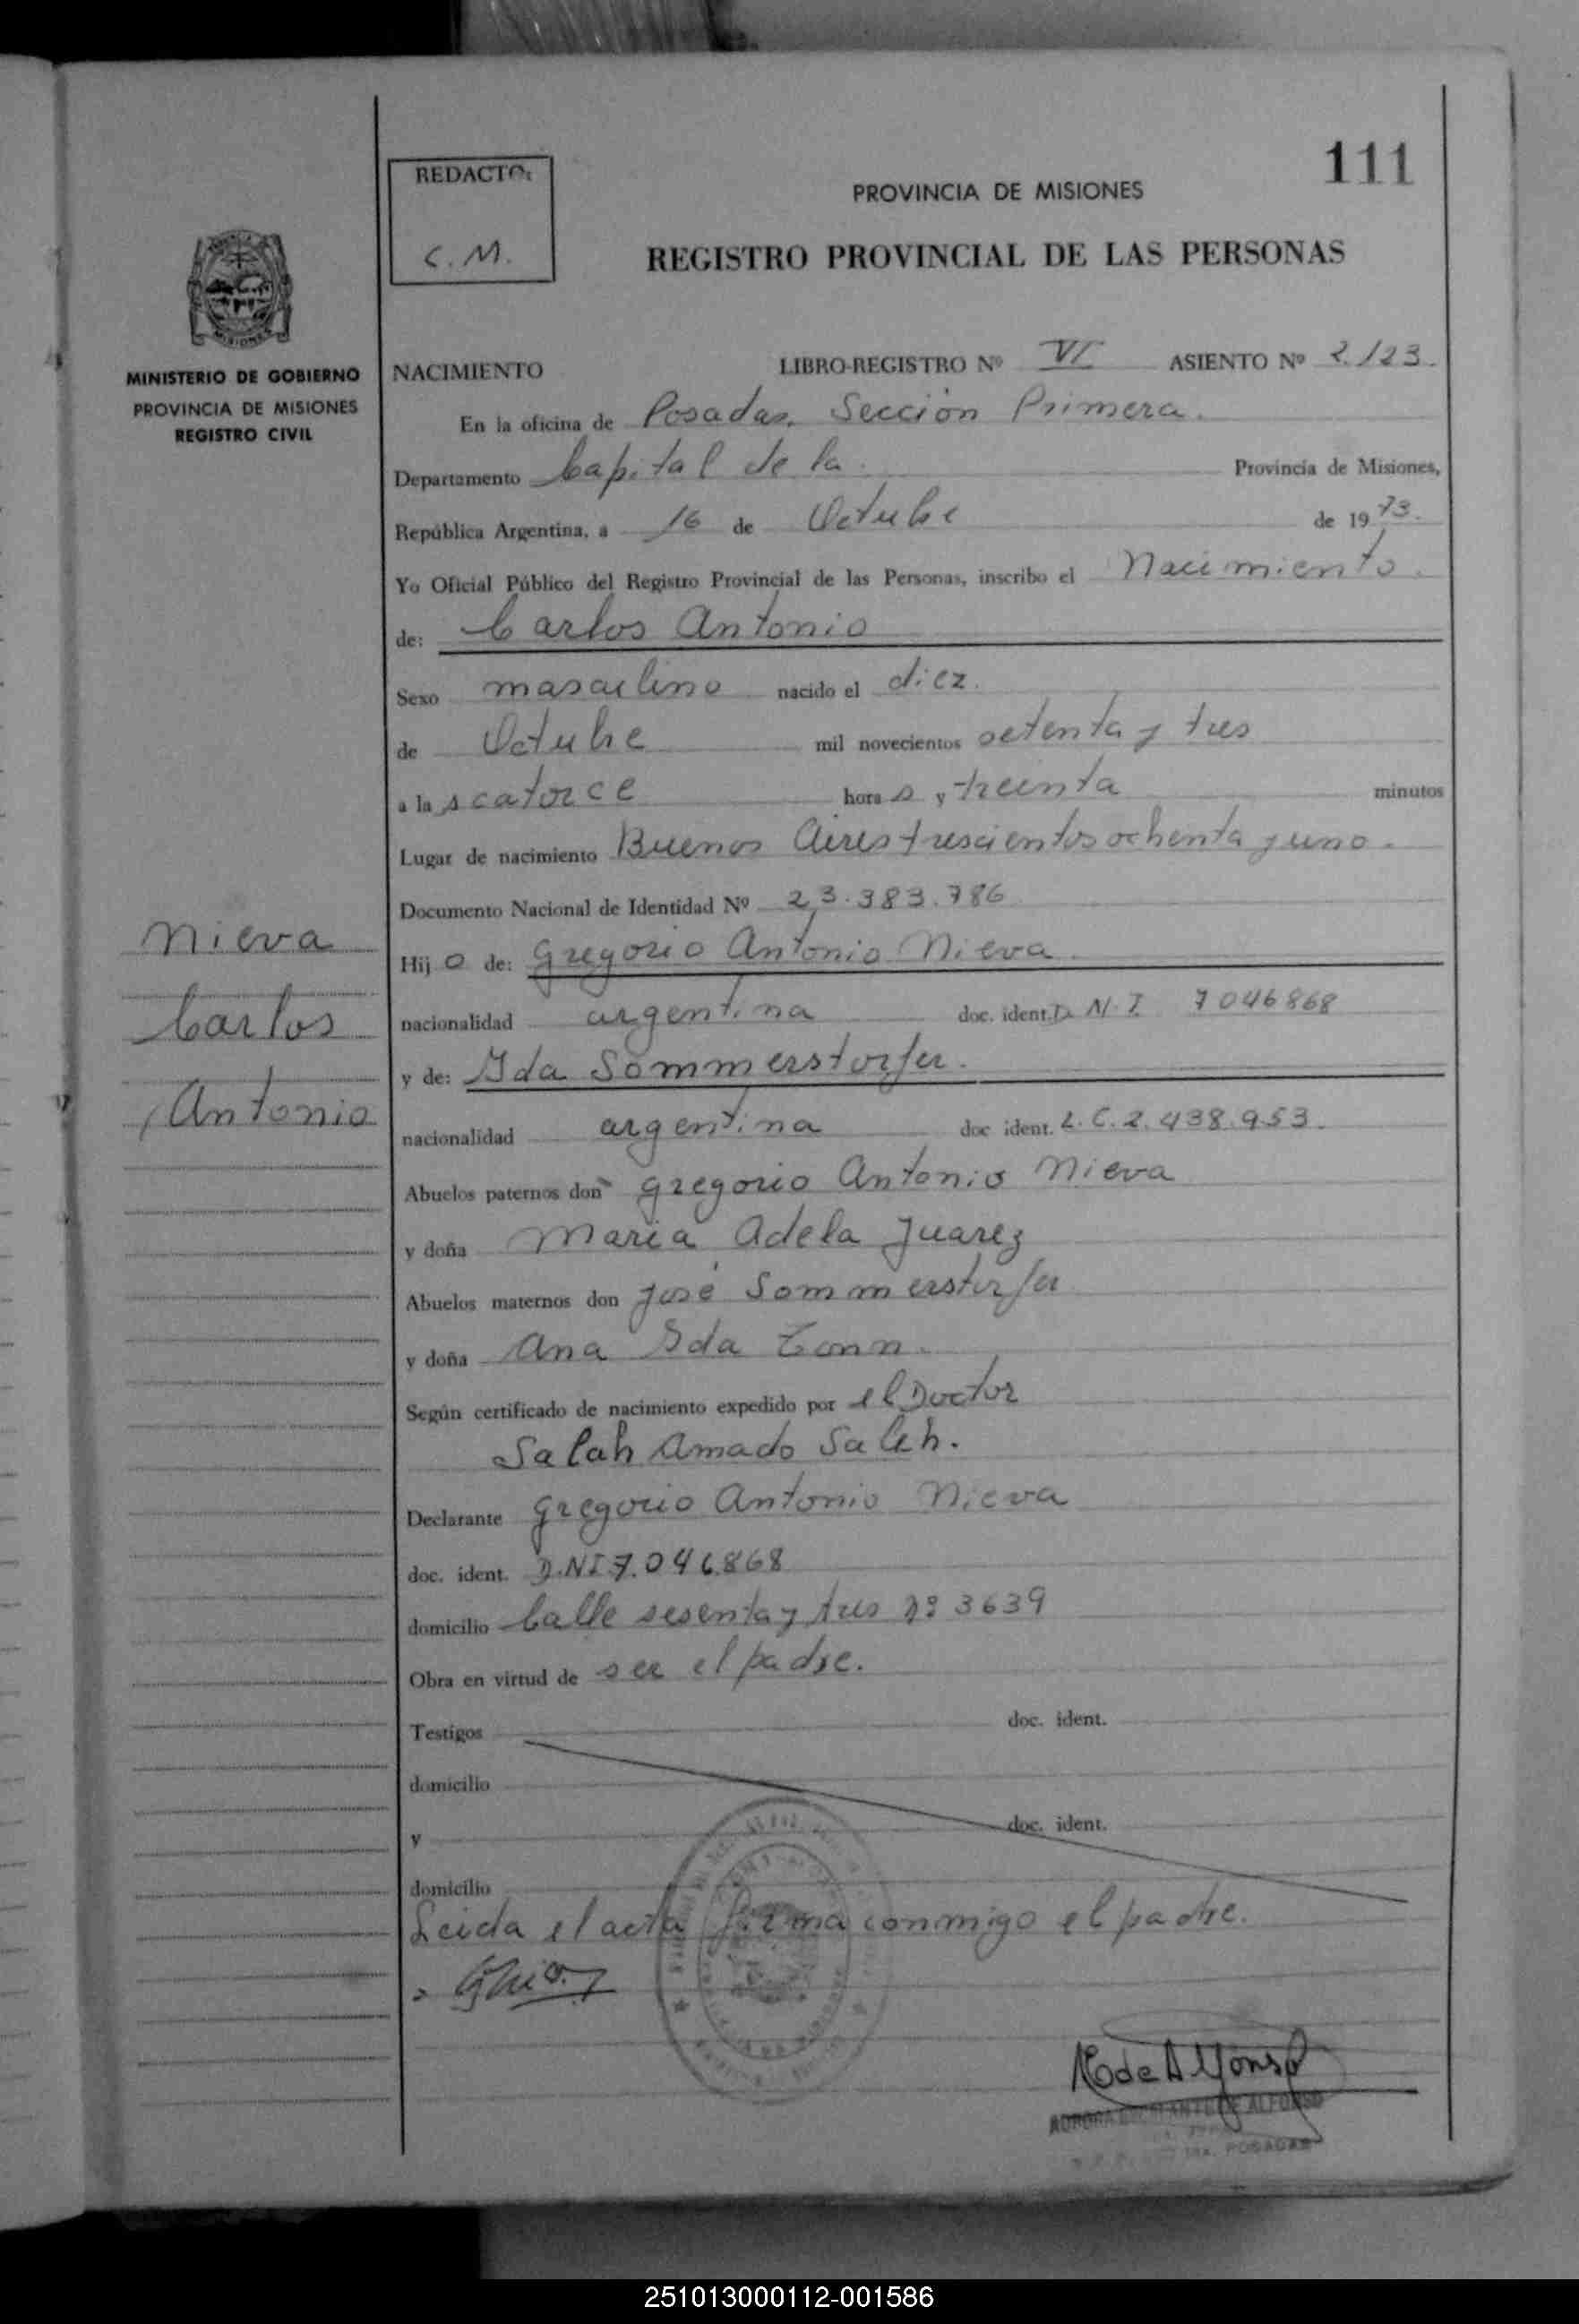 111
REDACTO:
C. M.
PROVINCIA DE MISIONES
REGISTRO PROVINCIAL DE LAS PERSONAS
MISIONES
MINISTERIO DE GOBIERNO
PROVINCIA DE MISIONES
REGISTRO CIVIL
NACIMIENTO LIBRO-REGISTRO Nº VI ASIENTO Nº 2.123.
En la oficina de Posadas, Sección Primera.
Departamento Capital de la Provincia de Misiones,
República Argentina, a 16 de Octubre de 1973.
Yo Oficial Público del Registro Provincial de las Personas, inscribo el Nacimiento
de: Carlos Antonio
Sexo masculino nacido el diez
de Octubre mil novecientos setenta y tres
a las catorce horas y treinta minutos
Lugar de nacimiento Buenos Aires trescientos ochenta y uno.
Documento Nacional de Identidad Nº 23.383.786
Nieva
Carlos
Antonio
Hijo de: Gregorio Antonio Nieva
nacionalidad argentina doc. ident. D. N. I. 7046868
y de: Ida Sommerstorfer.
nacionalidad argentina doc ident. L. C. 2.438.953.
Abuelos paternos don Gregorio Antonio Nieva
y doña Maria Adela Juarez
Abuelos maternos don José Sommerstorfer
y doña Ana Ida Tonn.
Según certificado de nacimiento expedido por el Doctor
Salah Amado Saleh.
Declarante Gregorio Antonio Nieva
doc. ident. D.N.I 7.046.868
domicilio Calle sesenta y tres nº 3639
Obra en virtud de ser el padre.
Testigos doc. ident.
domicilio
y doc. ident.
domicilio
Leida el acta firma conmigo el padre.
de Alfonso
DE ALFONSO
POSADAS
251013000112-001586